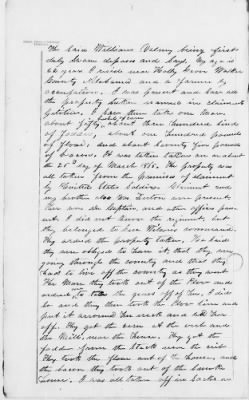 The Said William Delmy being first
duly Sworn deposes and Says, My age is
62 years I reside near Holly Grove Walker
County Alabama and a farmer by
occupation. I was present and Saw all
the property taken named in claimants
petition. I saw them take one Mare,
about fifty bushels of corn, three hundred bind
of fodder, about one hundred pounds
of flour, and about Seventy five pounds
of bacon. It was taken
the 25th day of March 1865. The property was
all taken from the premises of claimant
by United States Soldiers. Claimant and
my brother
There was a Captain and other officers present.
I did not know the regiment, but
they belonged to Genl Wilsons command.
They ordered the property taken, He said
they was obliged to have it that they were
going through the country and that they
had to live off the country as they went
The Mare they took out of the Plow and
ordered me to take the gear off of her, I did
so and they then took the Plow line and
put it around her neck and led her
off. They got the corn at the crib and
the Mill, near the house. They got the
fodder from the Stack near the crib
They took the flour out of the house, and
the bacon they took out of the Smoke
house. I was all taken off in Sacks on